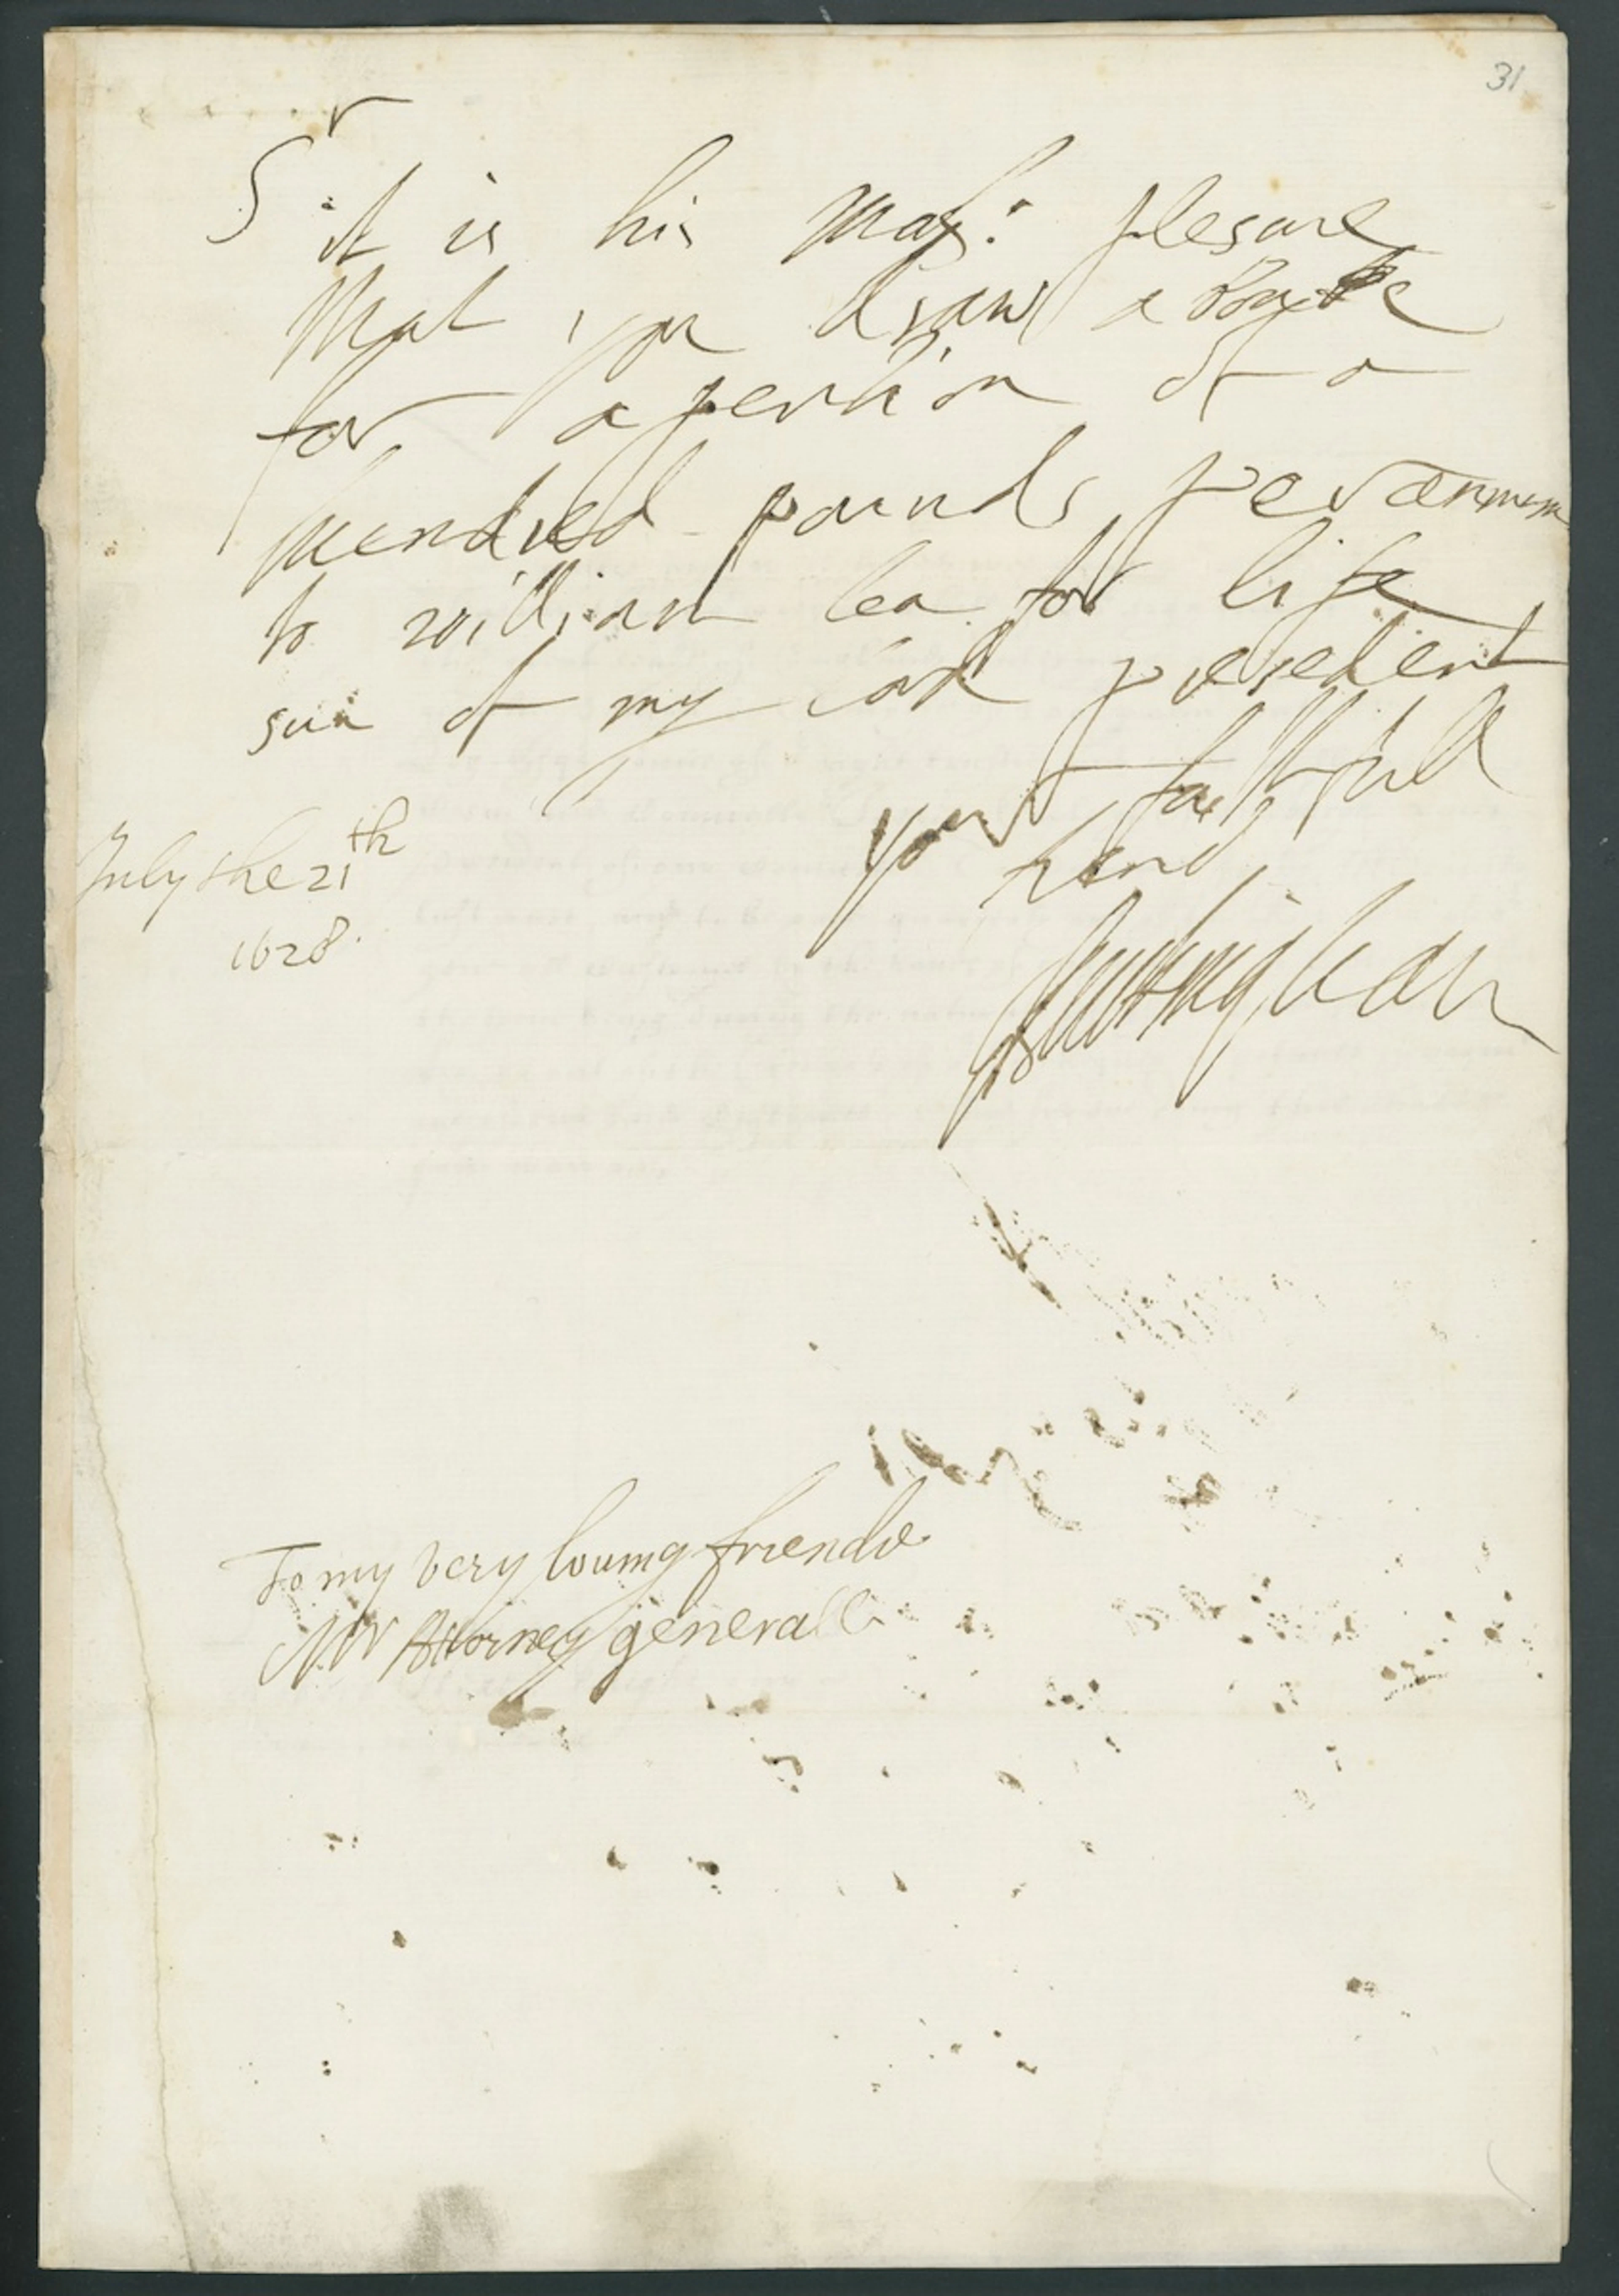 31
Sr it is his Maj: plesure
that you draw a
for a pention of a
hundred pounds per annum
to william lea for life
sun of my lord presedent
your faithfull
frend
Buckingham
July the 21th
1628.
To my very louing friende
Mr Attorney generall